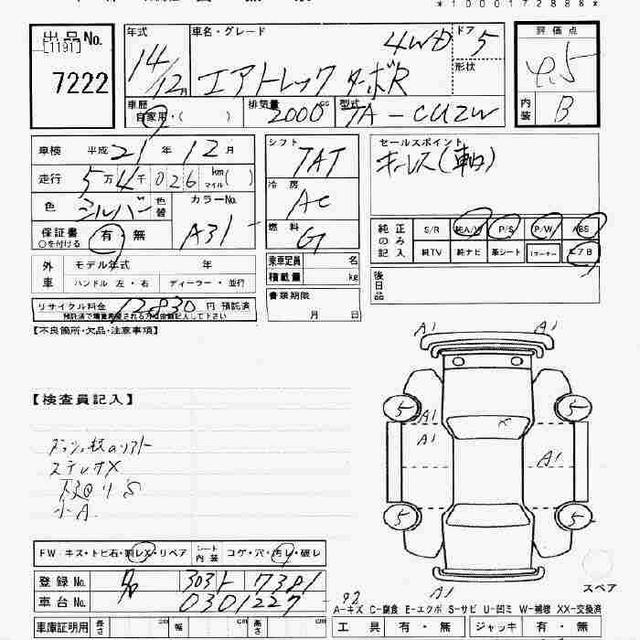 *1000172888*
出品No.
[1191]
7222
年式
14/12月
車名・グレード
エアトレック ターボR
4WD
ドア
5
形状
評価点
4.5
内装
B
車歴
自家用・( )
排気量
2000cc
型式
TA-CU2W
車検 平成21年12月
走行 5万4千026km マイル( )
色 シルバー 色替
カラーNo.
A31
保証書 有・無
○を付ける
シフト
7AT
冷房
AC
燃料
G
セールスポイント
キーレス(車白)
純正のみ記入
S/R
P/S
P/W
ABS
純TV
純ナビ
革シート
エアB
外車
モデル年式 年
ハンドル 左・右 ディーラー・並行
乗車定員 名
積載量 kg
後日品
リサイクル料金 12830円 預託済
書類期限
月 日
【不良箇所・欠品・注意事項】
【検査員記入】
ステレオX
小A
A1 A1
5 A1 5
A1 A1
5 5
A1
スペア
FW-キズ・トビ石・割レX・リペア
シート内装
コゲ・穴・汚レ・破レ
登録No. 303ト 7381
車台No. 0301227
A-キズ C-腐食 E-エクボ S-サビ U-凹ミ W-補修 XX-交換済
車庫証明用 長さ 幅 高さ
工具 有・無 ジャッキ 有・無